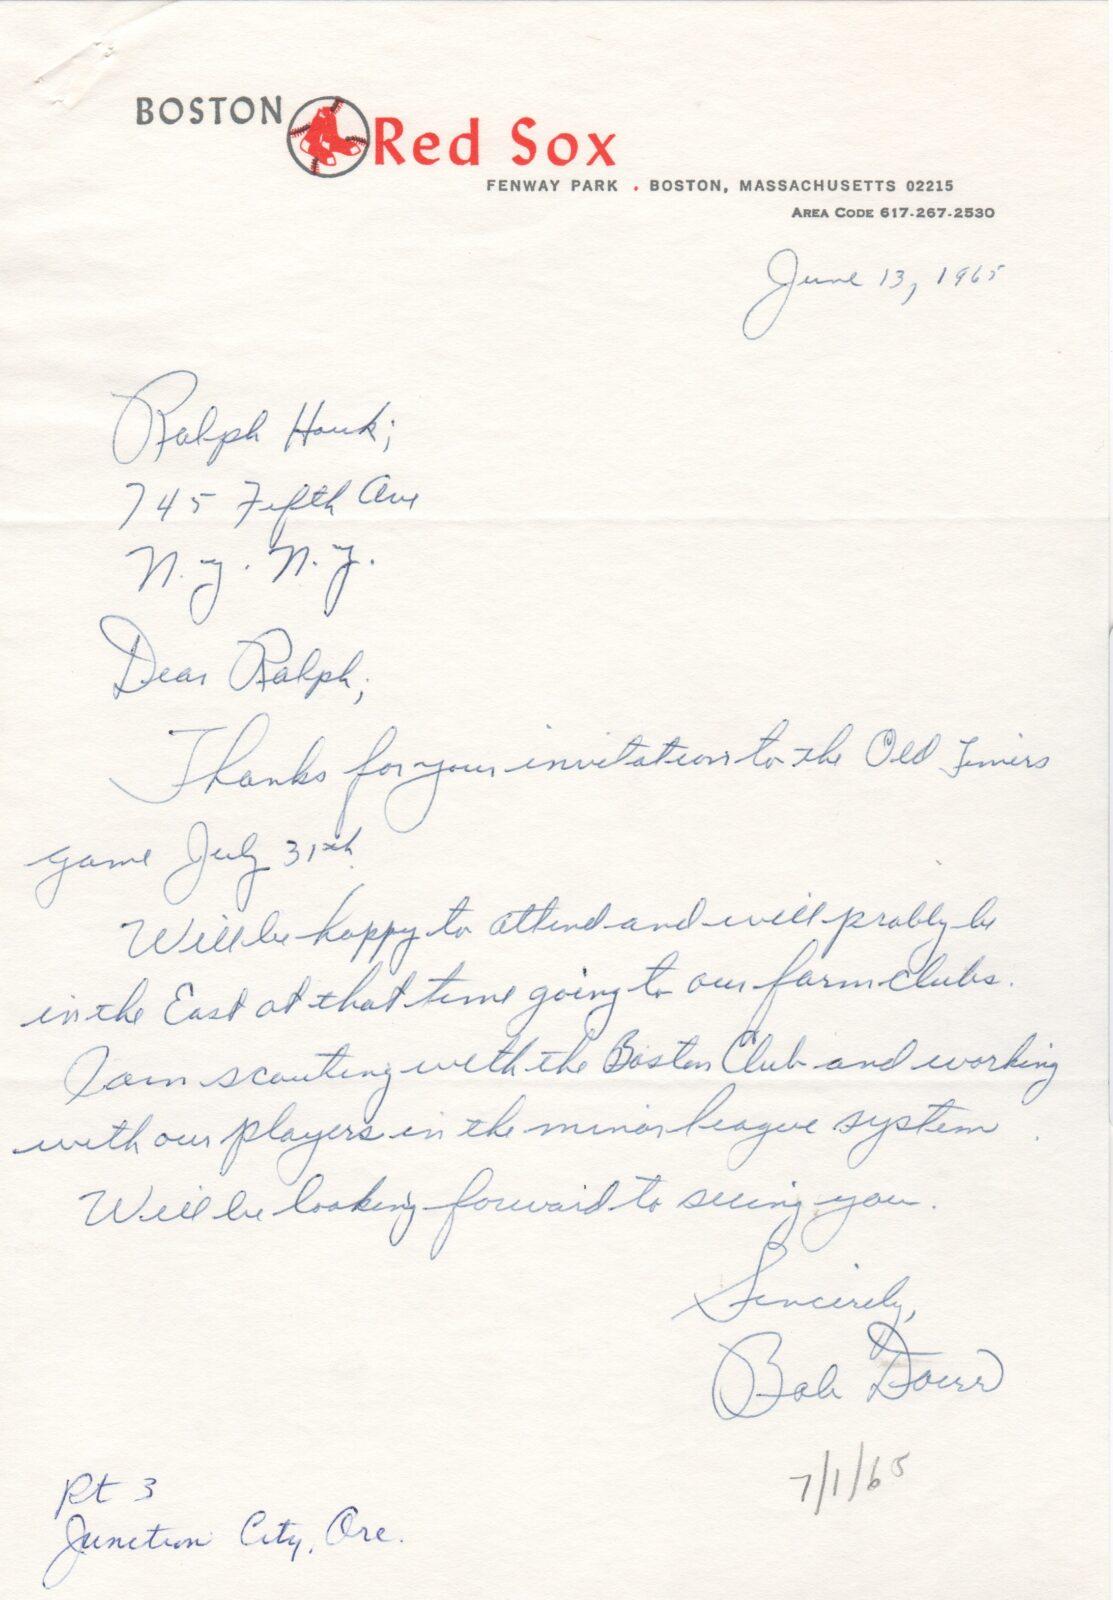 BOSTON Red Sox
FENWAY PARK . BOSTON, MASSACHUSETTS 02215
AREA CODE 617-267-2530
June 13, 1965
Ralph Houk;
745 Fifth Ave
N.Y. N.Y.
Dear Ralph;
Thanks for your invitation to the Old Timers
game July 31th.
Will be happy to attend and will prably be
in the East at that time going to our farm clubs.
I am scouting with the Boston Club and working
with our players in the minor league system.
Will be looking forward to seeing you.
Sincerely,
Bob Doerr
7/1/65
Rt 3
Junction City, Ore.